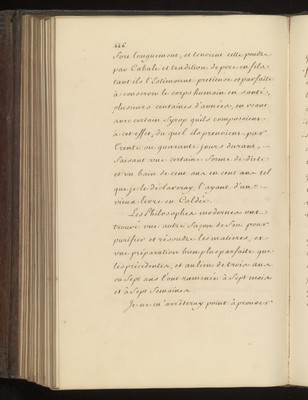 446.
Fort longuement, et tenoient cette poudre
par Cabale et tradition de pere en fils
tant ils l'Estimoient pretieuse et parfaite
à conserver le corps humain en santé,
plusieurs centaines d'années, en usant
avec certain Syrop qu'ils composoient
à cet effet, du quel ils prenoient par
Trente ou quarante jours durant,
faisant une certaine forme de diete
et un bain de cent ans en cent ans tel
que je le déclareray, l'ayant d'un
vieux livre en Caldée.
Les Philosophes modernes ont
trouvé une autre façon de feu pour
purifier et résoudre les matieres, et
une préparation bien plus parfaite que
les précédentes, et au lieu de trois ans
ou Sept ans l'ont ramenée à Sept mois
et à Sept Semaines
Je ne m'arrêteray point à prouver